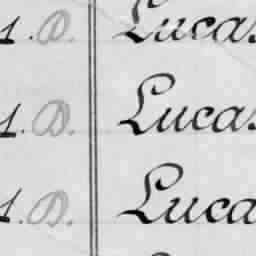 1. D. Lucas
1. D. Lucas
1. D. Lucas